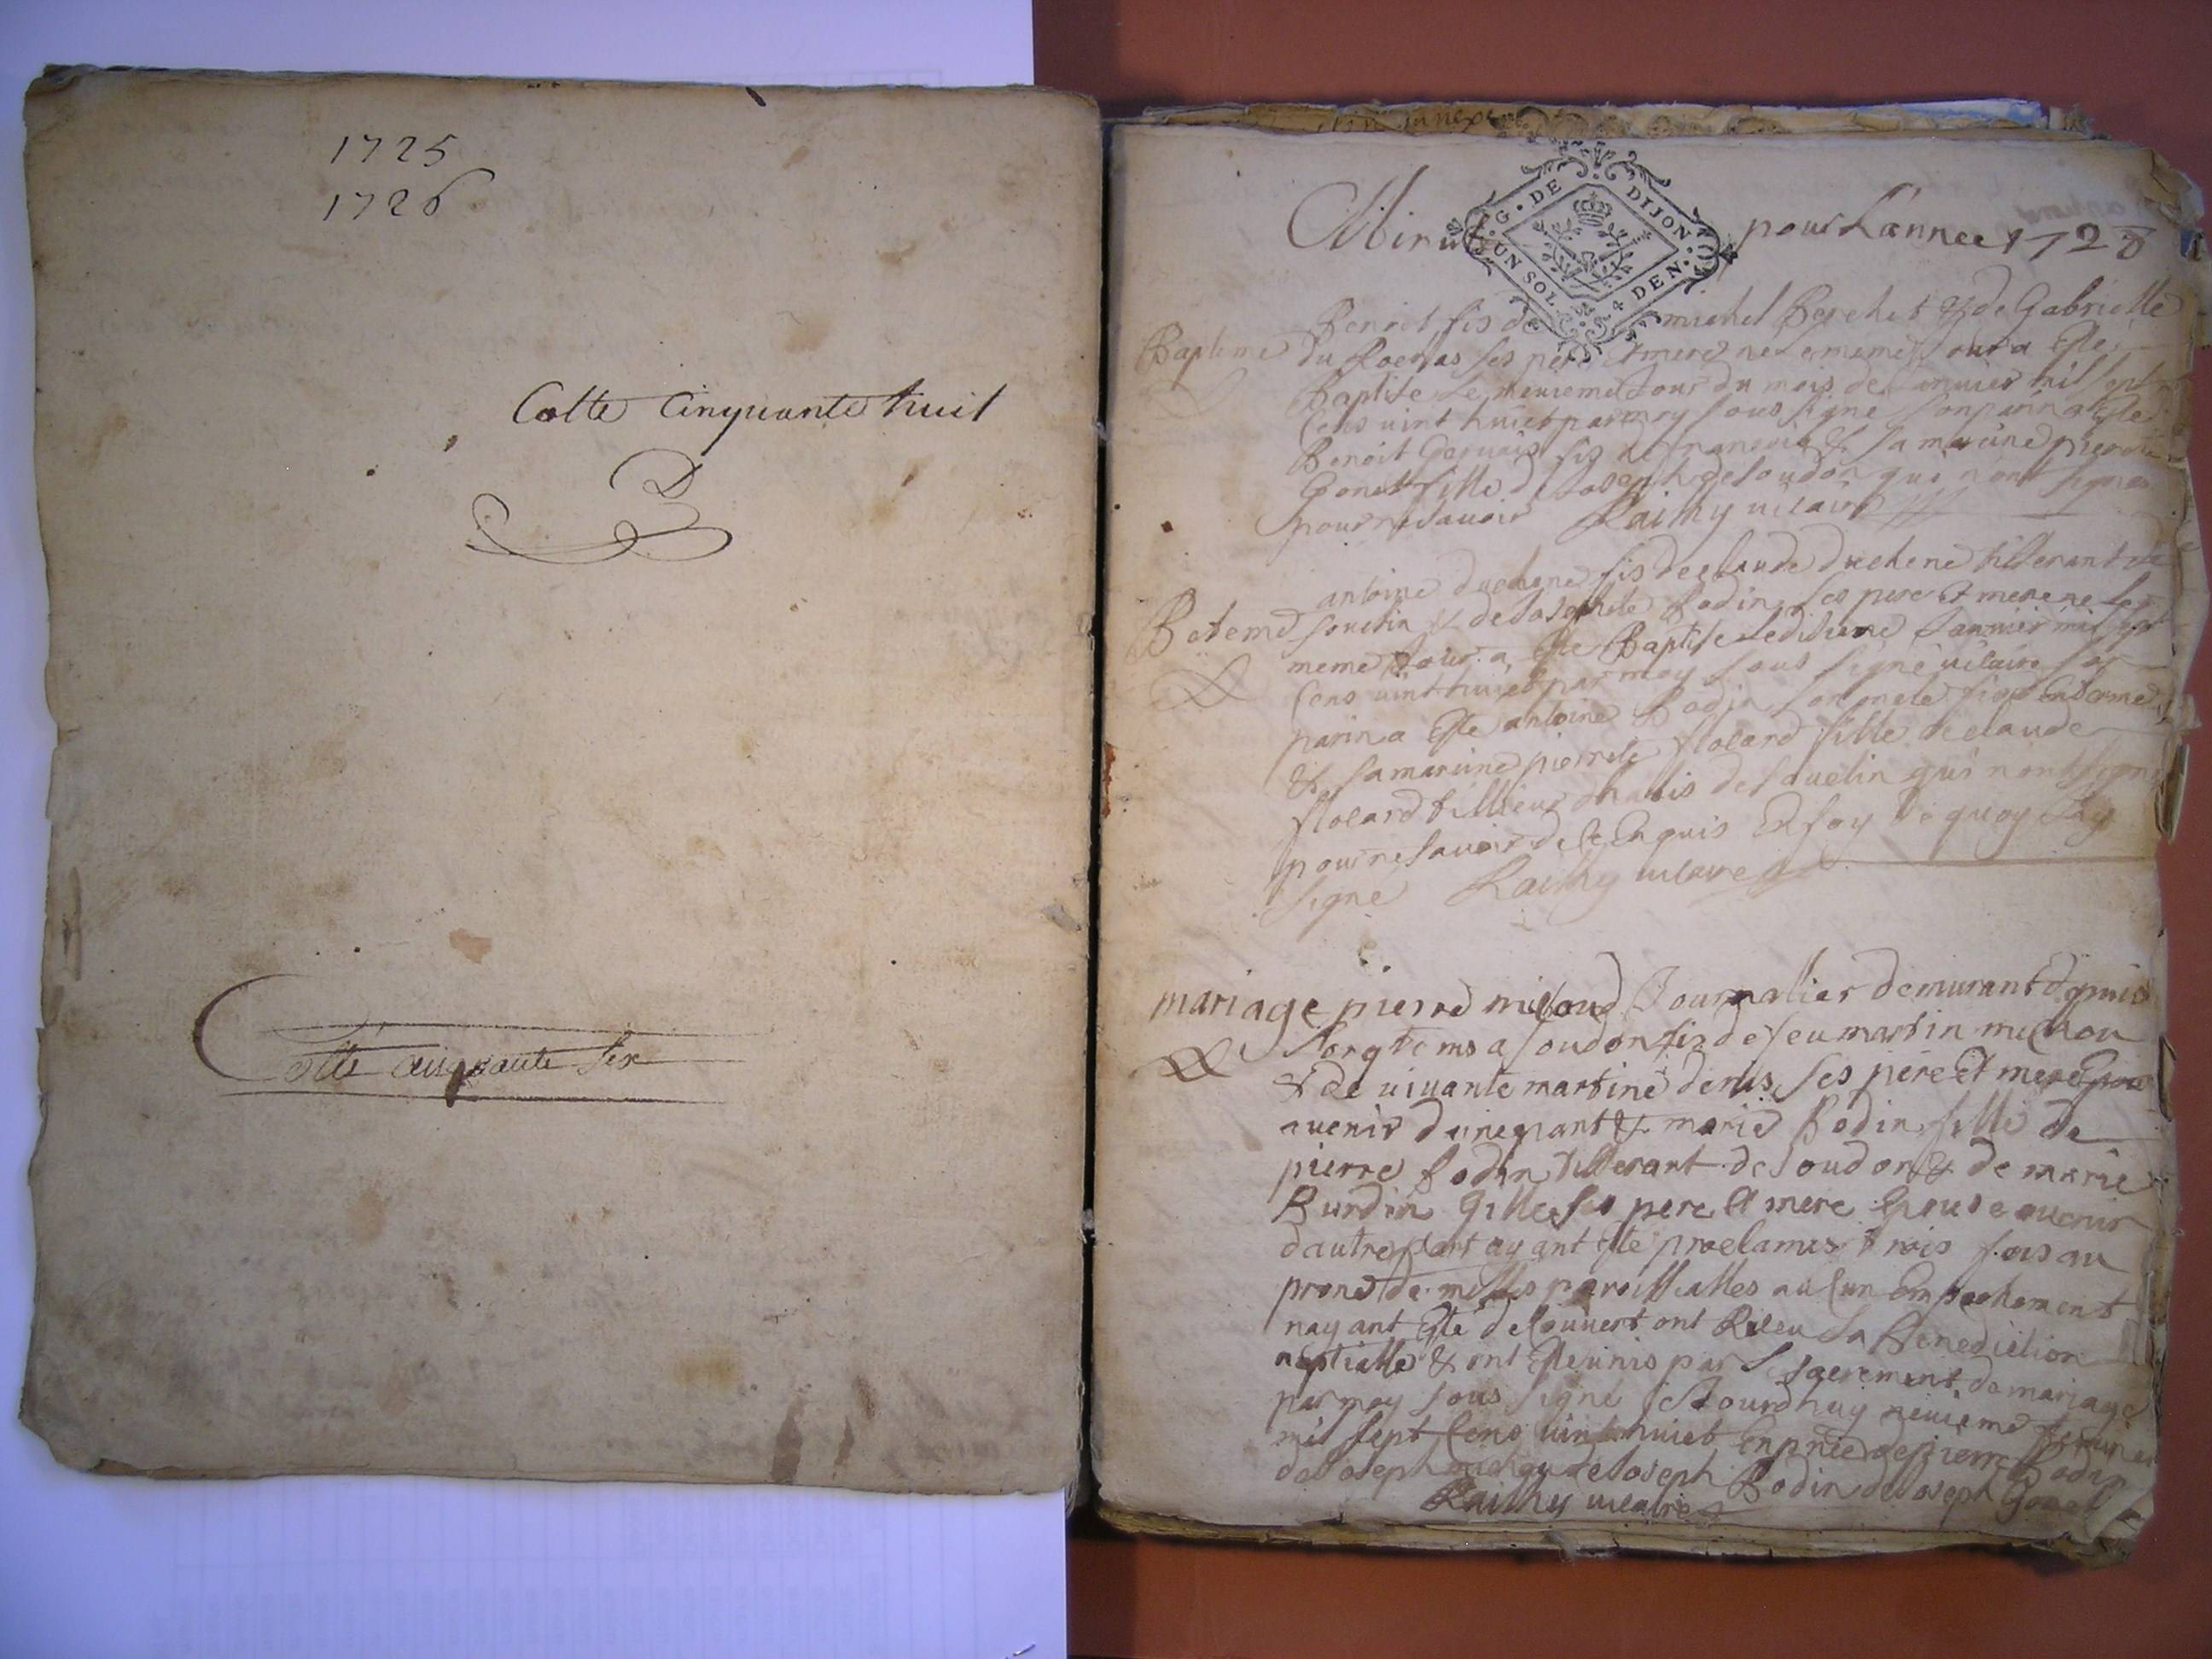 1725
1726
Cotte Cinquante huit
Cotte cinquante six
G. DE DIJON.
UN SOL 4 DEN.
Minut pour L'annee 1728
Bapteme
Benoit fis de michel Berchet & de Gabrielle
du ses pere et mere ne le meme Jour a Este
Baptise Le neuieme Jour du mois de Janvier mil sept
Cens uint huict par moy sous signe son parin a Este
Benoit Gervais fis de francois & sa marine pierrette
Gonet fille de Joseph de soudon qui n ont signes
pour ne savoir Raithy vicaire
Bateme
antoine duchene fis de claude duchene tisserant de
& de Josephte Bodin ses pere et mere ne le
meme Jour a Este Baptise le Janvier mil sept
Cens uint huict par moy sous signe vicaire son
parin a Este antoine Bodin son
& sa marine pierrete flolard fille de claude
flolard de savelin qui n ont signe
pour ne savoir de ce Enquis En foy de quoy Jay
signe Raithy vicaire
mariage pierre michoud Journalier demurant depuis
longtems a soudon fis de feu martin michou
& de uiuante martine denis ses pere et mere Epoux
auenir dune part & marie Bodin fille de
pierre Bodin tisserant de soudon & de marie
Burdin Gille ses pere et mere Epouse auenir
dautre part ayant Este proclames trois fois au
prone de messes paroissialles aucun Empechement
nayant Este decouuert ont Receu La Benediction
nuptialle & ont Este unis par le sacrement de mariage
par moy sous signe cejourdhuy neuieme feurier
mil sept Cens uint huict En pnce de pierre Bodin
de Joseph michou de Joseph Bodin de Joseph Gonet
Raithy vicaire